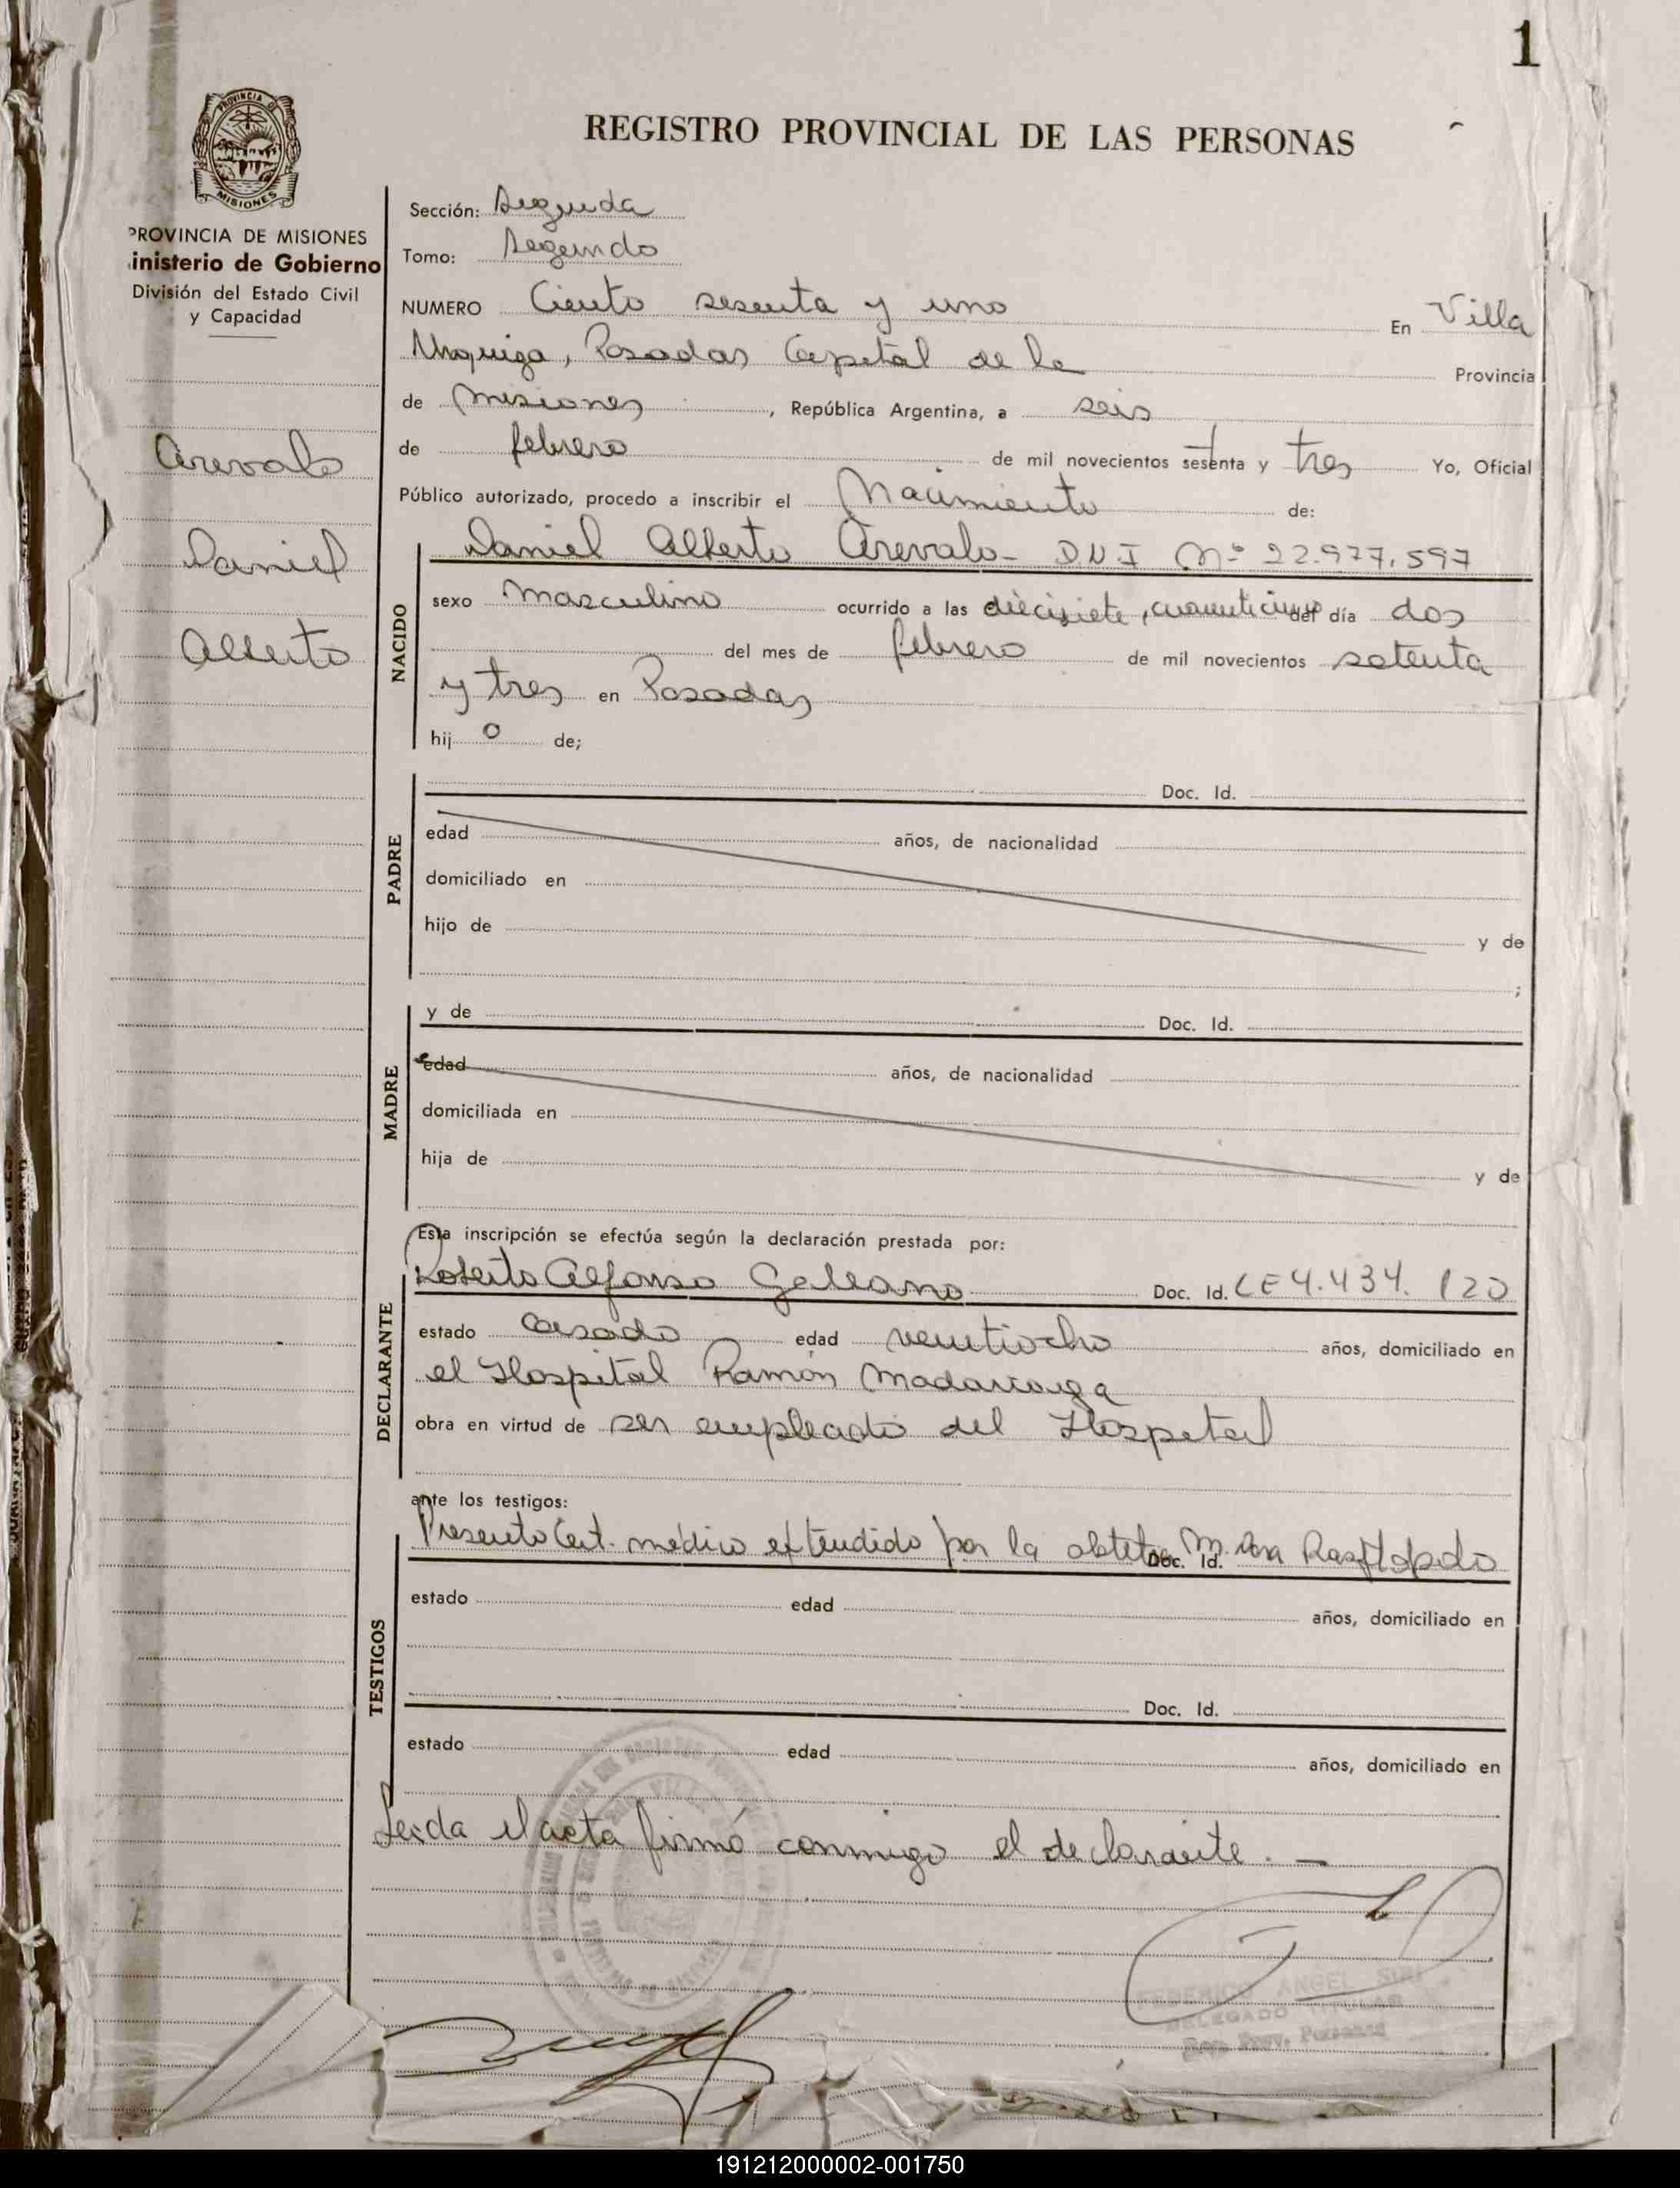 1
PROVINCIA DE
MISIONES
REGISTRO PROVINCIAL DE LAS PERSONAS
PROVINCIA DE MISIONES
inisterio de Gobierno
División del Estado Civil
y Capacidad
Arevalo
Daniel
Alberto
Sección: Segunda
Tomo: Segundo
NUMERO Ciento sesenta y uno En Villa
Urquiza, Posadas Capital de la Provincia
de Misiones, República Argentina, a seis
de febrero de mil novecientos setenta y tres Yo, Oficial
Público autorizado, procedo a inscribir el Nacimiento de:
NACIDO
Daniel Alberto Arevalo- D.N.I Nº 22.977.597
sexo masculino ocurrido a las diecisiete, cuarenticinco del día dos
del mes de febrero de mil novecientos setenta
y tres en Posadas
hij o de;
PADRE
Doc. Id.
edad años, de nacionalidad
domiciliado en
hijo de y de
;
MADRE
y de Doc. Id.
edad años, de nacionalidad
domiciliada en
hija de y de
Esta inscripción se efectúa según la declaración prestada por:
DECLARANTE
Roberto Alfonso Galeano Doc. Id. LE 4.434.120
estado casado edad veintiocho años, domiciliado en
el Hospital Ramón Madariaga
obra en virtud de ser empleado del Hospital
ante los testigos:
TESTIGOS
Presento Cert. médico extendido por la Doc. Id.
estado edad años, domiciliado en
Doc. Id.
estado edad años, domiciliado en
Leida el acta firmó conmigo el declarante. —
FEDERICO ANGEL
DELEGADO TITULAR
Reg. Prov. Personas
191212000002-001750